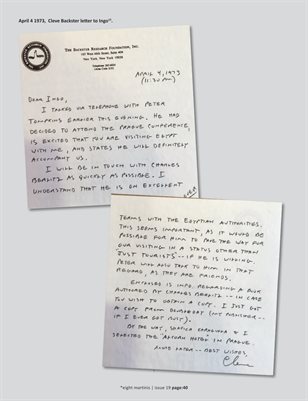 April 4 1973, Cleve Backster letter to Ingo
THE BACKSTER RESEARCH FOUNDATION, INC.
New York, New York 10036
APRIL 4, 1973
(11:30 PM)
DEAR INGO,
I TALKED VIA TELEPHONE WITH PETER
TOMPKINS EARLIER THIS EVENING. HE HAD
DECIDED TO ATTEND THE PRAGUE CONFERENCE,
IS EXCITED THAT YOU ARE VISITING EGYPT
WITH ME, AND STATES HE WILL DEFINITELY
ACCOMPANY US.
I WILL BE IN TOUCH WITH CHARLES
BERLITZ AS QUICKLY AS POSSIBLE. I
UNDERSTAND THAT HE IS ON EXCELLENT
OVER
TERMS WITH THE EGYPTIAN AUTHORITIES.
THIS SEEMS IMPORTANT, AS IT WOULD BE
POSSIBLE FOR HIM TO PAVE THE WAY FOR
OUR VISITING IN A STATUS OTHER THAN
"JUST TOURISTS" -- IF HE IS WILLING.
PETER WILL ALSO TALK TO HIM IN THAT
REGARD, AS THEY ARE FRIENDS.
ENCLOSED IS INFO. REGARDING A BOOK
AUTHORED BY CHARLES BERLITZ -- IN CASE
YOU WISH TO OBTAIN A COPY. I JUST GOT
A COPY FROM (MY PUBLISHER --
IF I EVER GET BUSY).
BY THE WAY, SHAFICA KARAGULLA & I
SELECTED THE HOTEL IN PRAGUE
MORE LATER -- BEST WISHES,
Cleve
*eight martinis | issue 19 page:40